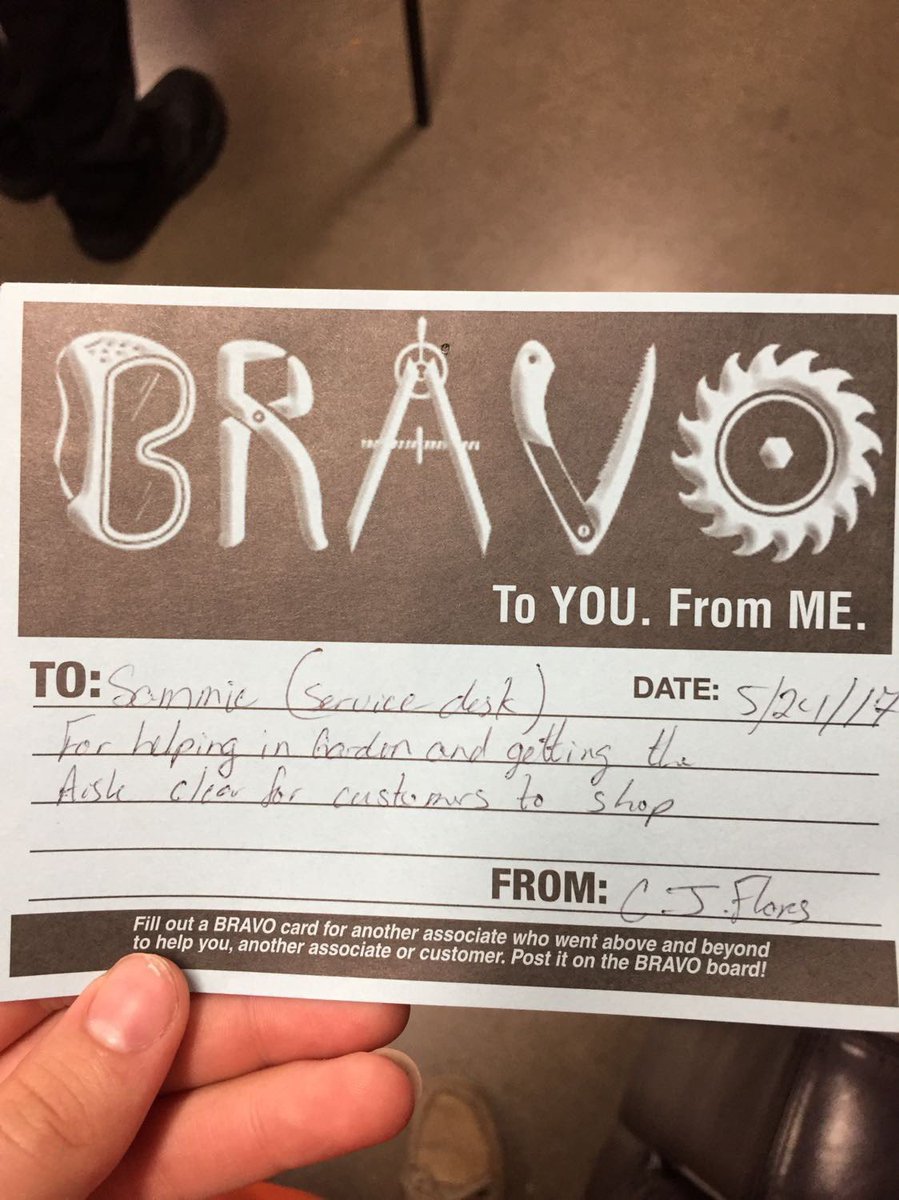 BRAVO
To YOU. From ME.
TO: Sammie (service desk) DATE: 5/24/17
For helping in Garden and getting the
Aisle clear for customers to shop
FROM: C.J. Flores
Fill out a BRAVO card for another associate who went above and beyond
to help you, another associate or customer. Post it on the BRAVO board!